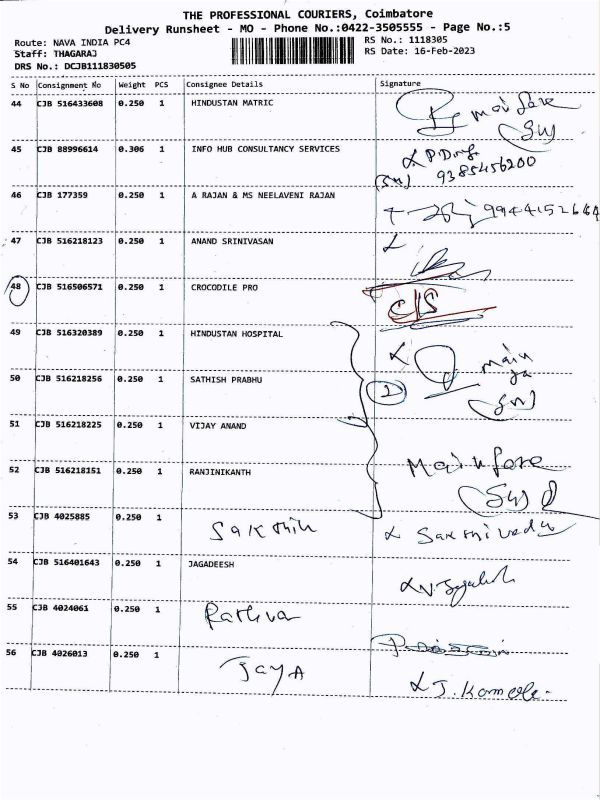 THE PROFESSIONAL COURIERS, Coimbatore
Delivery Runsheet - MO - Phone No.:0422-3505555 - Page No.:5
Route: NAVA INDIA PC4 RS No.: 1118305
Staff: THAGARAJ RS Date: 16-Feb-2023
DRS No.: DCJB111830505
S No Consignment No Weight PCS Consignee Details Signature
44 CJB 516433608 0.250 1 HINDUSTAN MATRIC
45 CJB 88996614 0.306 1 INFO HUB CONSULTANCY SERVICES
9385456200
46 CJB 177359 0.250 1 A RAJAN & MS NEELAVENI RAJAN
9944152664
47 CJB 516218123 0.250 1 ANAND SRINIVASAN
48 CJB 516506571 0.250 1 CROCODILE PRO
C/S
49 CJB 516320389 0.250 1 HINDUSTAN HOSPITAL
main
50 CJB 516218256 0.250 1 SATHISH PRABHU
2
51 CJB 516218225 0.250 1 VIJAY ANAND
52 CJB 516218151 0.250 1 RANJINIKANTH
53 CJB 4025885 0.250 1
54 CJB 516401643 0.250 1 JAGADEESH
55 CJB 4024061 0.250 1
56 CJB 4026013 0.250 1 Jaya